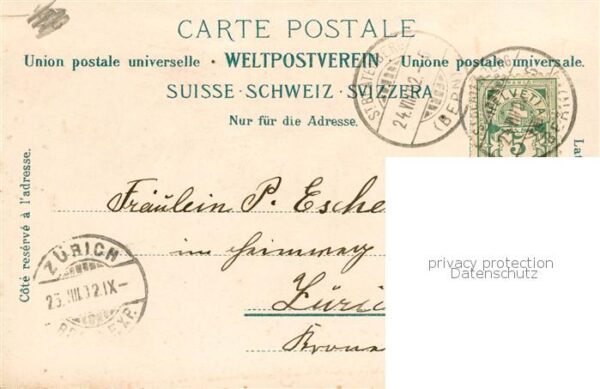 CARTE POSTALE
Union postale universelle · WELTPOSTVEREIN · Unione postale universale.
SUISSE · SCHWEIZ · SVIZZERA
Nur für die Adresse.
Côté reservé à l'adresse.
Lat
ST. BEATENBERG
24.VIII.02
(BERN)
HELVETIA
5
Fräulein P. Esche
im
Züri
ZÜRICH
25.VIII.02.IX–
EXP.
privacy protection
Datenschutz